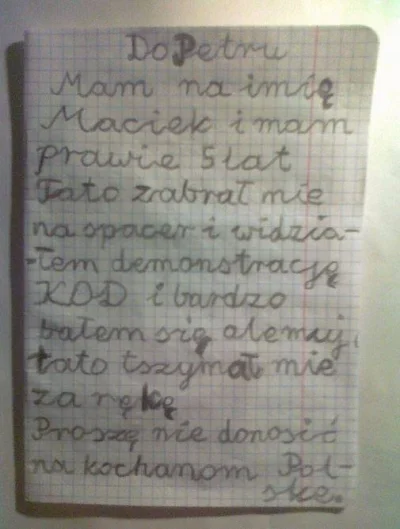 Do Petru
Mam na imię
Maciek i mam
prawie 5 lat
Tato zabrał mie
na spacer i widzia-
-łem demonstrację
KOD i bardzo
bałem się ale muj
tato tszymał mie
za rękę
Proszę nie donosić
na kochanom Pol-
ske.